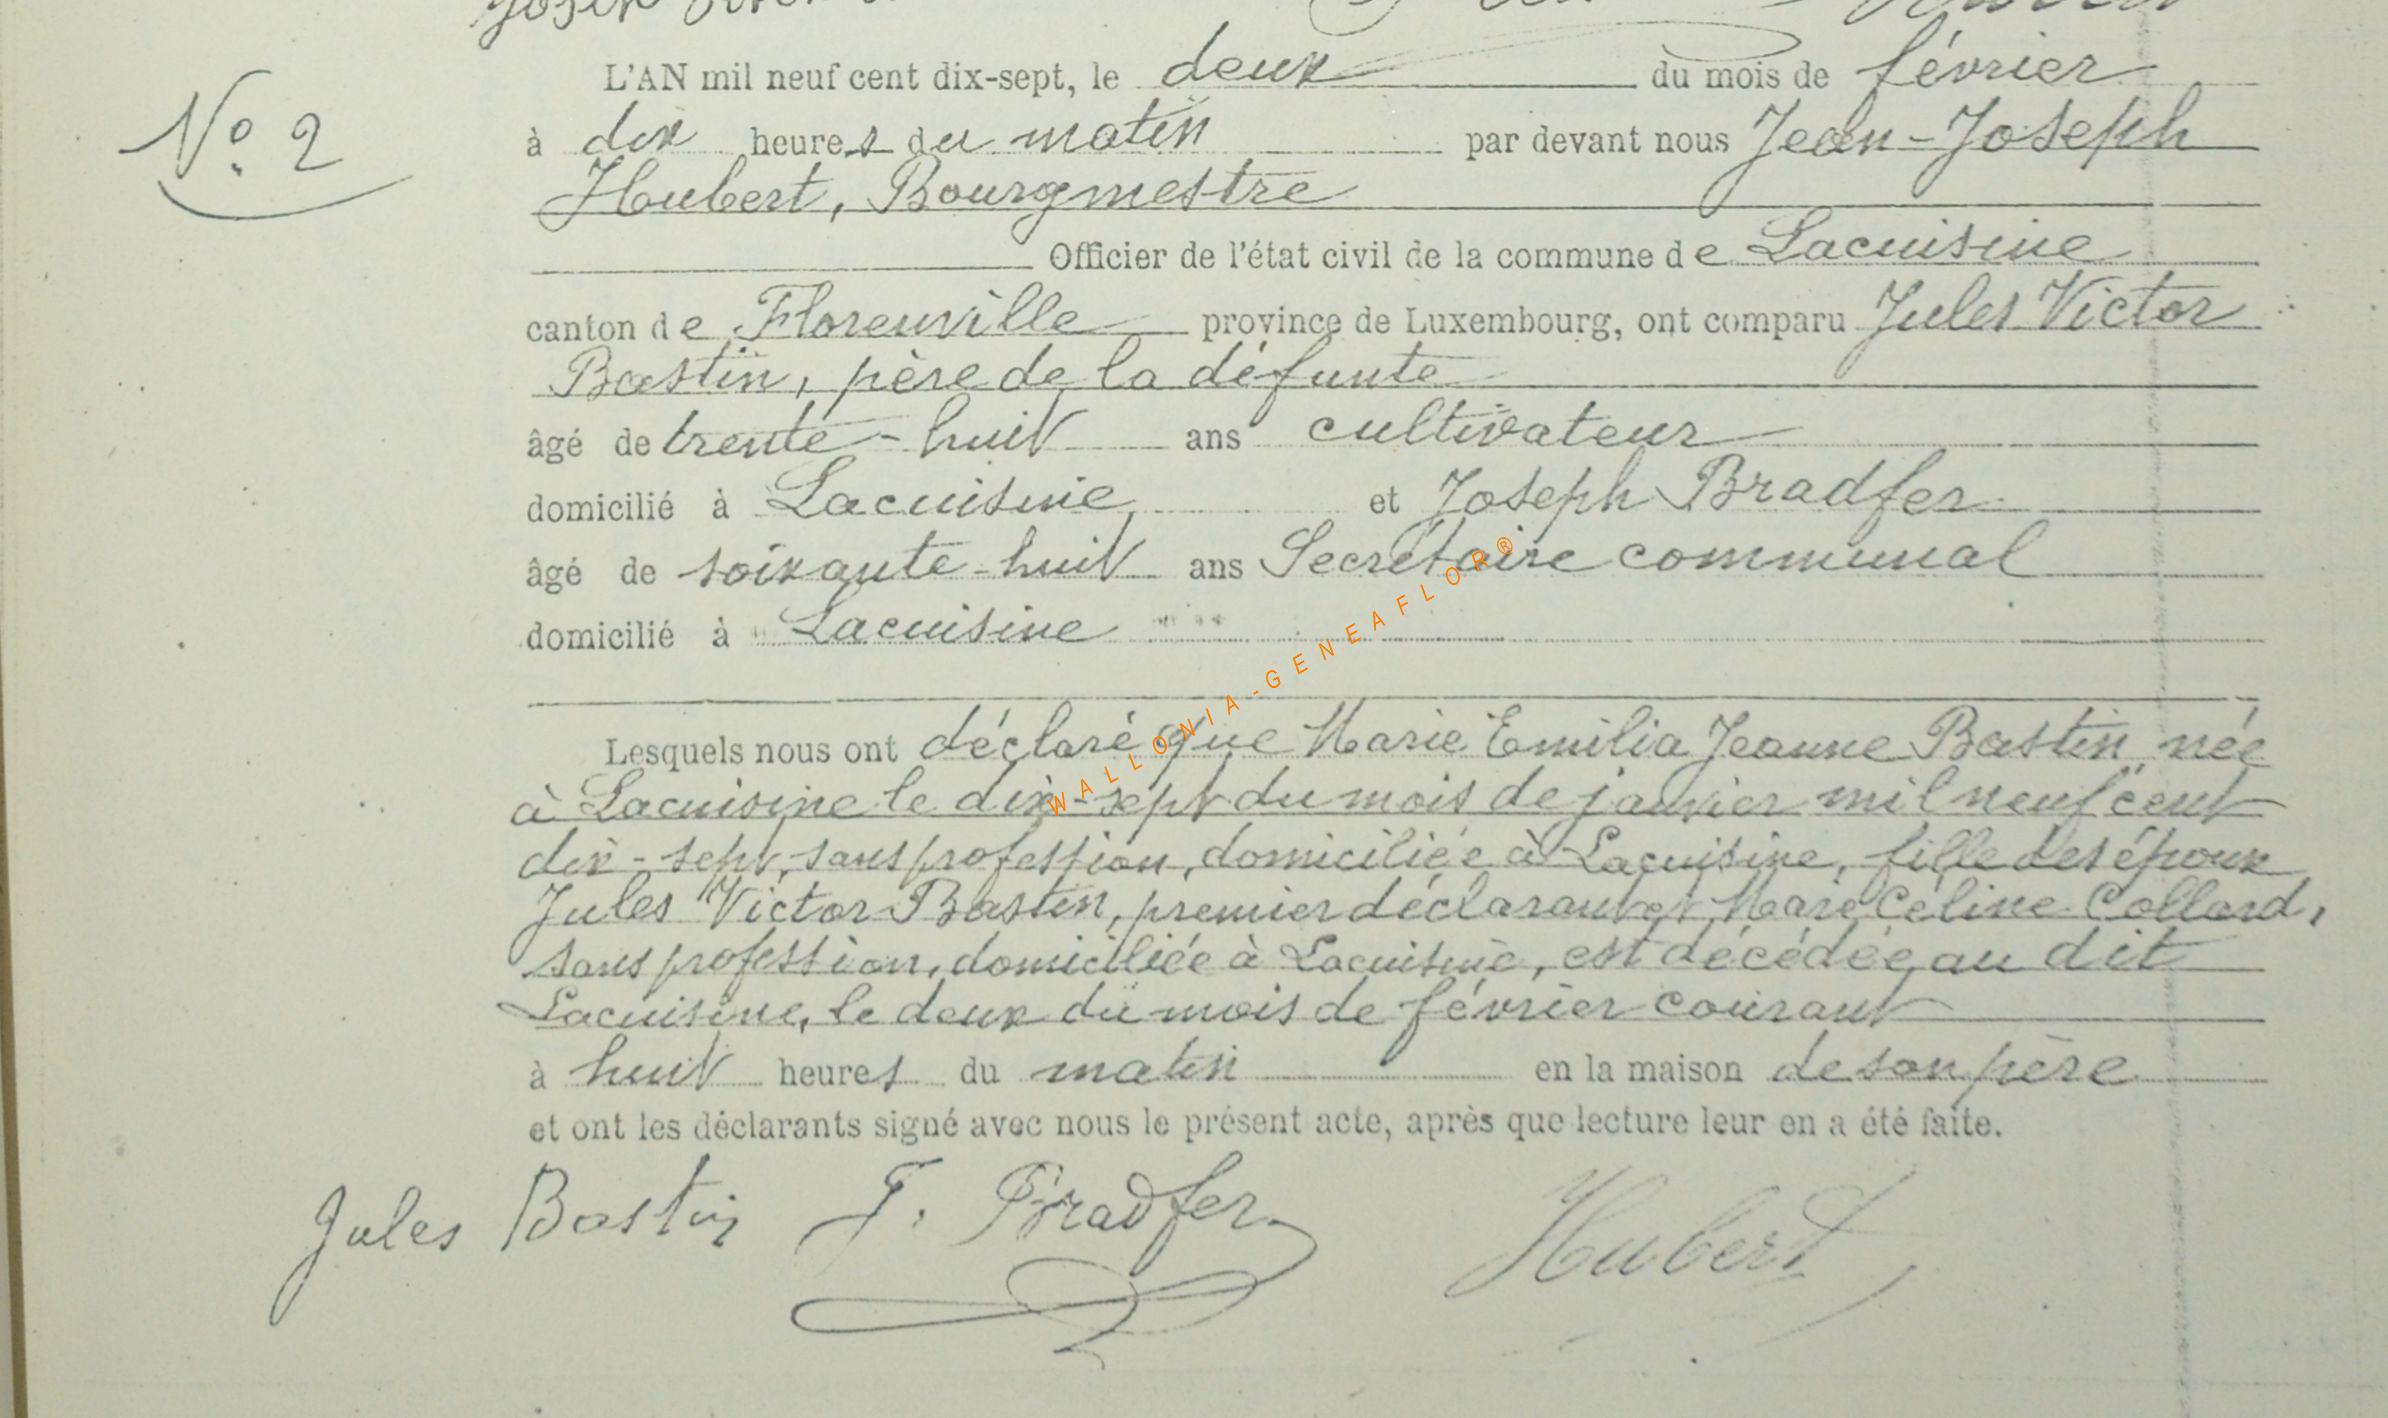 N° 2
L'AN mil neuf cent dix-sept, le deux du mois de février
à dix heures du matin par devant nous Jean-Joseph
Hubert, Bourgmestre
Officier de l'état civil de la commune de Lacuisine
canton de Florenville province de Luxembourg, ont comparu Jules Victor
Bastin, père de la défunte
âgé de trente-huit ans cultivateur
domicilié à Lacuisine et Joseph Bradfer
âgé de soixante-huit ans Secrétaire communal
domicilié à Lacuisine
Lesquels nous ont déclaré que Marie Emilia Jeanne Bastin née
à Lacuisine le dix-sept du mois de janvier mil neuf cent
dix-sept, sans profession, domiciliée à Lacuisine, fille des époux
Jules Victor Bastin, premier déclarant et Marie Céline Collard,
sans profession, domiciliée à Lacuisine, est décédée au dit
Lacuisine, le deux du mois de février courant
à huit heures du matin en la maison de son père
et ont les déclarants signé avec nous le présent acte, après que lecture leur en a été faite.
Jules Bastin J. Bradfer Hubert
WALLONIA-GENEAFLOR®